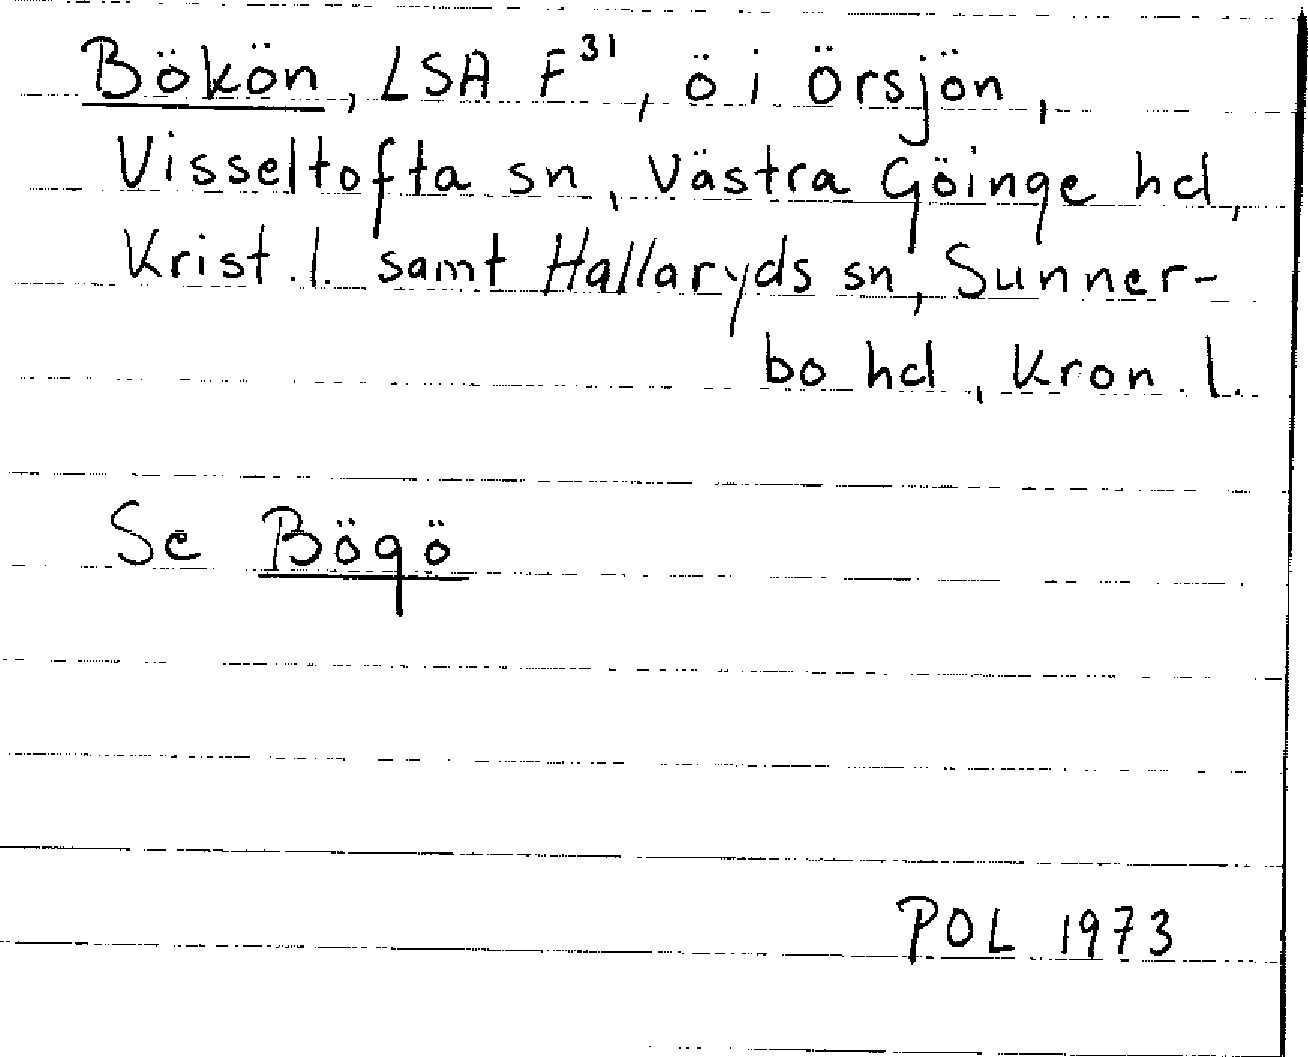 Bökön, LSA F³¹, ö i Örsjön,
Visseltofta sn, Västra Göinge hd,
Krist. l. samt Hallaryds sn, Sunner-
bo hd, Kron. l.
Se Bögö
POL 1973